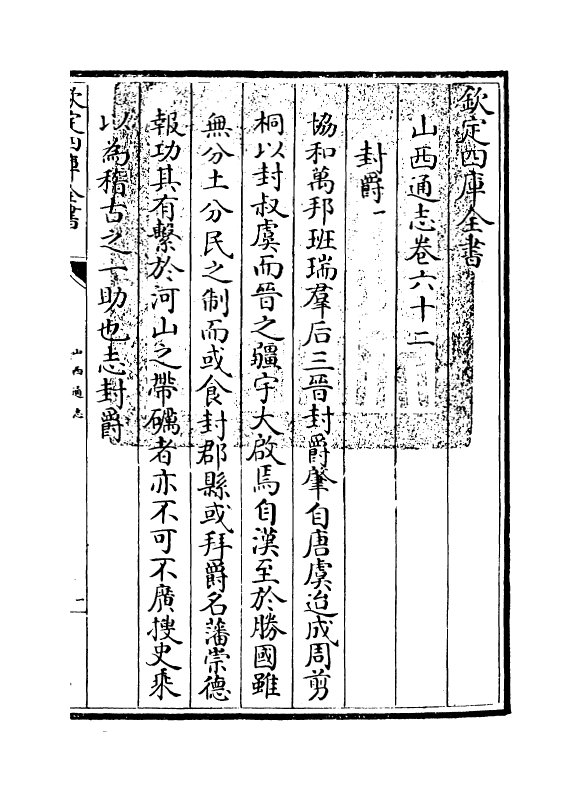 欽定四庫全書
山西通志卷六十二
封爵一
協和萬邦班瑞羣后三晉封爵肇自唐虞迨成周剪
桐以封叔虞而晉之疆宇大啟焉自漢至於勝國雖
無分土分民之制而或食封郡縣或拜爵名藩崇德
報功其有繫於河山之帶礪者亦不可不廣搜史乘
以為稽古之一助也志封爵
欽定四庫全書
山西通志
一